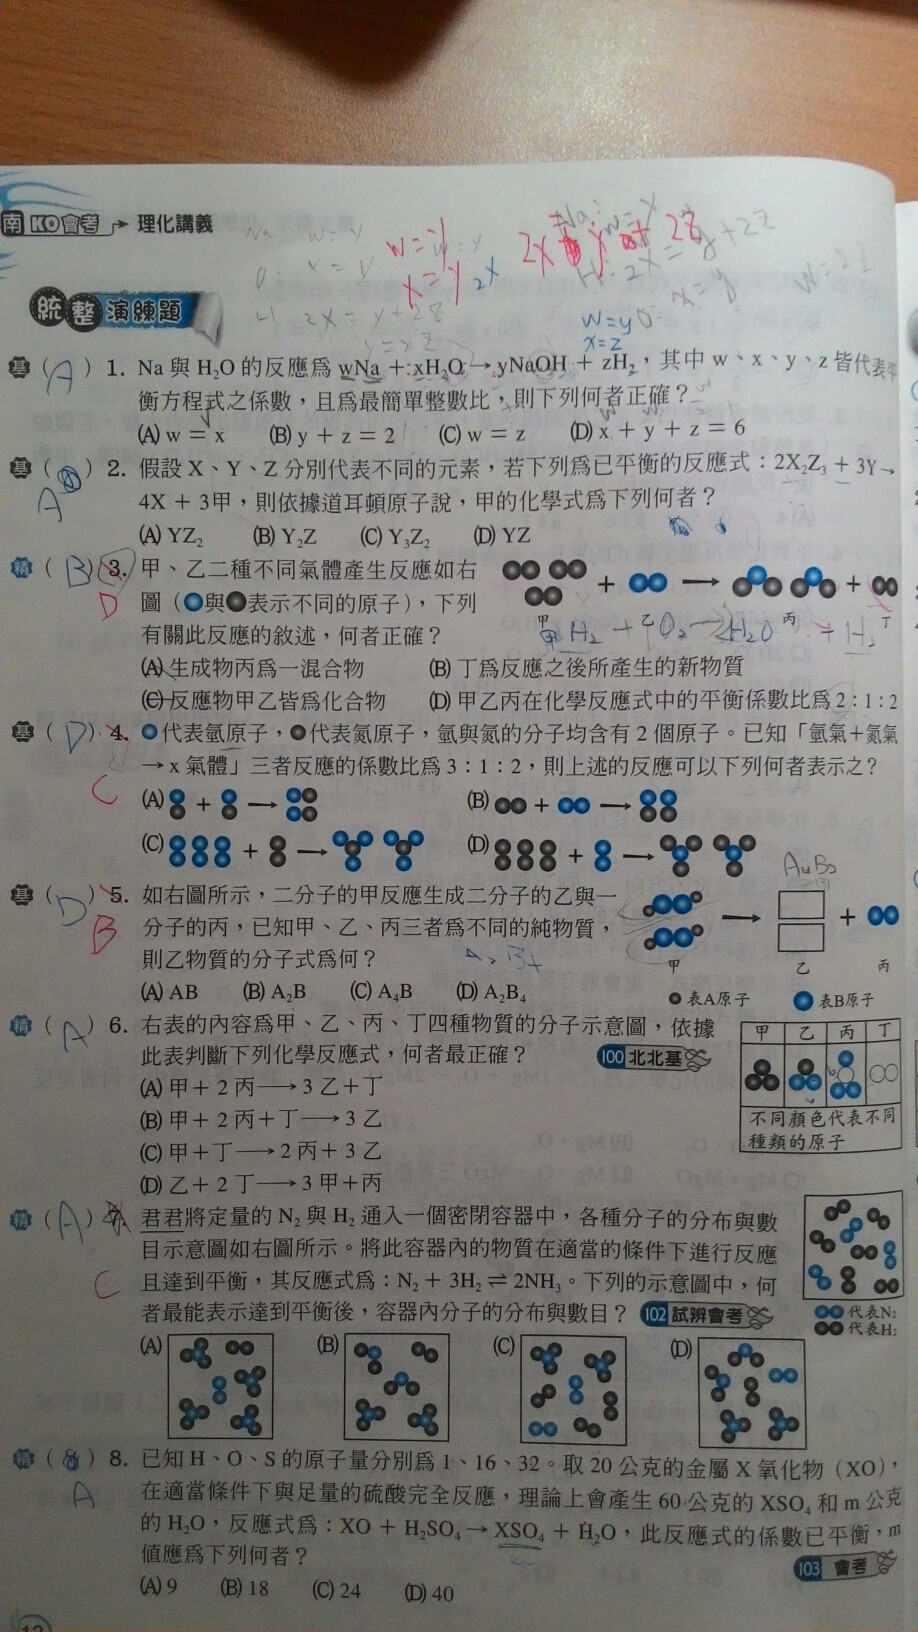 南 KO會考 → 理化講義
w = y
x = y 2X
2X = y + 2Z
w = y
x = z
統整演練題
基 ( A ) 1. Na 與 H₂O 的反應為 wNa + xH₂O → yNaOH + zH₂，其中 w、x、y、z 皆代表平
衡方程式之係數，且為最簡單整數比，則下列何者正確？
(A) w = x (B) y + z = 2 (C) w = z (D) x + y + z = 6
基 ( ) 2. 假設 X、Y、Z 分別代表不同的元素，若下列為已平衡的反應式：2X₂Z₃ + 3Y →
A 4X + 3甲，則依據道耳頓原子說，甲的化學式為下列何者？
(A) YZ₂ (B) Y₂Z (C) Y₃Z₂ (D) YZ
精 ( B ) 3. 甲、乙二種不同氣體產生反應如右
D 圖（與表示不同的原子），下列
有關此反應的敘述，何者正確？
+ → +
甲 乙 丙 丁
甲 H₂ + O₂ → 2H₂O + H₂
(A) 生成物丙為一混合物 (B) 丁為反應之後所產生的新物質
(C) 反應物甲乙皆為化合物 (D) 甲乙丙在化學反應式中的平衡係數比為 2：1：2
基 ( D ) 4. 代表氫原子，代表氮原子，氫與氮的分子均含有 2 個原子。已知「氫氣＋氮氣
C → x 氣體」三者反應的係數比為 3：1：2，則上述的反應可以下列何者表示之？
(A) + → (B) + →
(C) + → (D) + →
基 ( D ) 5. 如右圖所示，二分子的甲反應生成二分子的乙與一
B 分子的丙，已知甲、乙、丙三者為不同的純物質，
則乙物質的分子式為何？
(A) AB (B) A₂B (C) A₄B (D) A₂B₄
→ +
甲 乙 丙
表A原子 表B原子
精 ( A ) 6. 右表的內容為甲、乙、丙、丁四種物質的分子示意圖，依據
此表判斷下列化學反應式，何者最正確？ 100 北北基
(A) 甲 + 2 丙 → 3 乙 + 丁
(B) 甲 + 2 丙 + 丁 → 3 乙
(C) 甲 + 丁 → 2 丙 + 3 乙
(D) 乙 + 2 丁 → 3 甲 + 丙
甲 乙 丙 丁
不同顏色代表不同
種類的原子
精 ( A ) 7. 君君將定量的 N₂ 與 H₂ 通入一個密閉容器中，各種分子的分布與數
目示意圖如右圖所示。將此容器內的物質在適當的條件下進行反應
C 且達到平衡，其反應式為：N₂ + 3H₂ ⇌ 2NH₃。下列的示意圖中，何
者最能表示達到平衡後，容器內分子的分布與數目？ 102 試辨會考
代表N₂
代表H₂
(A) (B) (C) (D)
精 ( ) 8. 已知 H、O、S 的原子量分別為 1、16、32。取 20 公克的金屬 X 氧化物（XO），
A 在適當條件下與足量的硫酸完全反應，理論上會產生 60 公克的 XSO₄ 和 m 公克
的 H₂O，反應式為：XO + H₂SO₄ → XSO₄ + H₂O，此反應式的係數已平衡，m
值應為下列何者？ 103 會考
(A) 9 (B) 18 (C) 24 (D) 40